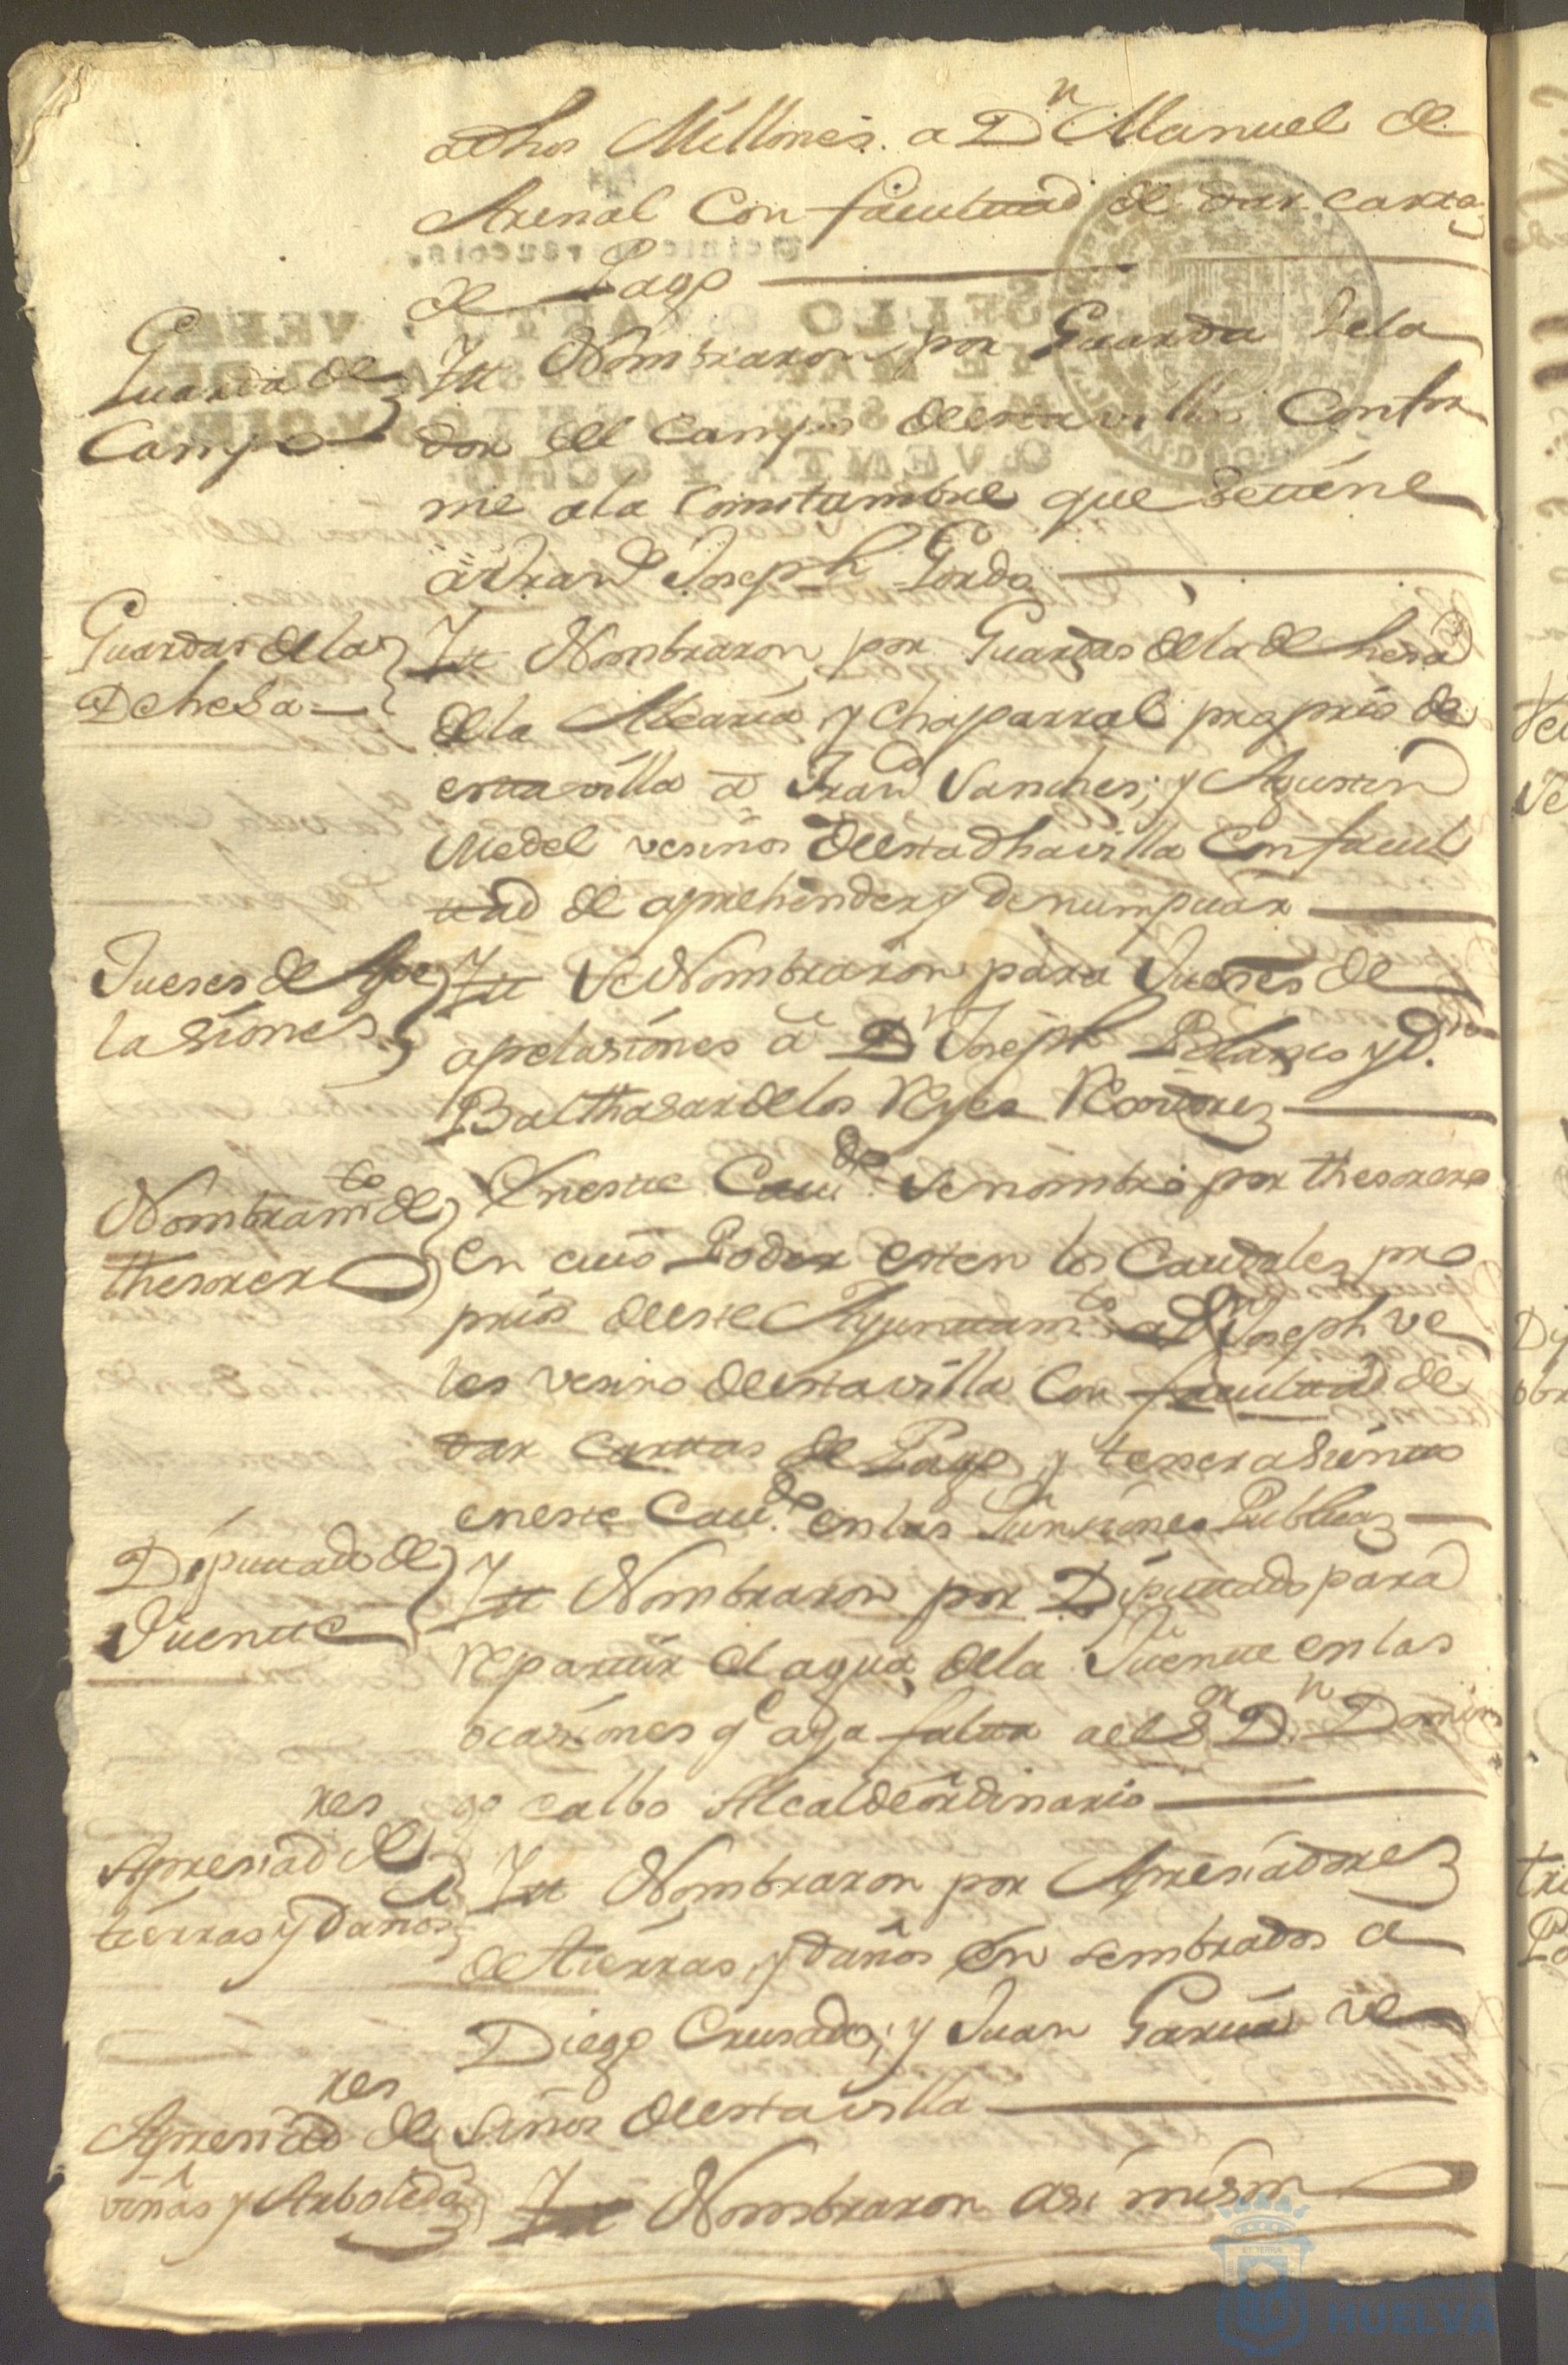 adhos Millones a Dn Manuel de
Arenal Con facultad de dar carta
de Pago
Guarda de
Campo
Itt Nombraron por Guarda Zela
dor del campo deestavilla Confor
me ala Constumbre que setiene
a Juan Joseph Gordo
Guardas dela
Dehesa
Itt Nombraron por Guardas dela dehesa
dela Alcaria y Chaparral proprio de
estavilla a Franco Sanches, y Agustin
Medel vesinos deestadhavilla Con facul
tad de aprehender y denumpciar
Jueses de Ape
lasiones
Itt Se Nombraron para Jueses de
apelasiones a Dn Joseph Polanco y Dn
Balthasar delos Reyes Rexidores
Nombramto de
thesorero
Eneste Caudo Senombro por thesorero
en cuio Poder esten los Caudales pro
prios deeste Ayuntamto a Dn Joseph Ve
les vesino deestavilla Con facultad de
dar cartas de Pago, y tener asiento
eneste Caudo enlas funsiones Publicas
Diputado de
fuente
Itt Nombraron por Diputado para
repartir el agua, dela fuente enlas
ocasiones qe aya falta ael Sor Dn Domin
go calbo Alcaldeordinario
Apresiadres de
tierras y daños
Itt Nombraron por Apresiadores
detierras, y daños en sembrados a
Diego Crusado, y Juan Garcia ve
sinos deestavilla
Apresiadres de
viñas y Arboleda
Itt Nombraron asi mismo
HUELVA